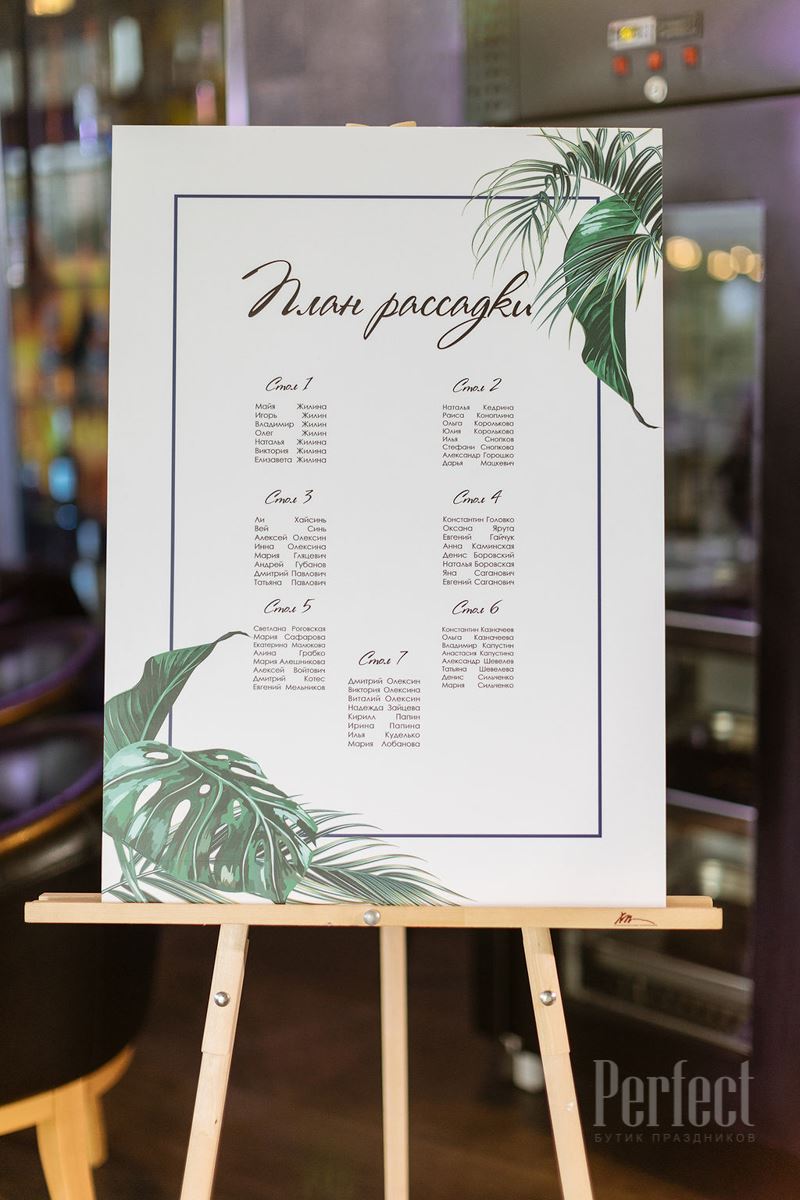 План рассадки
Стол 1
Майя Жилина
Игорь Жилин
Владимир Жилин
Олег Жилин
Наталья Жилина
Виктория Жилина
Елизавета Жилина
Стол 2
Наталья Кедрина
Раиса Коноплина
Ольга Королькова
Юлия Королькова
Илья Снопков
Стефани Снопкова
Александр Горошко
Дарья Мацкевич
Стол 3
Ли Хайсинь
Вей Синь
Алексей Олексин
Инна Олексина
Мария Гляцевич
Андрей Губанов
Дмитрий Павлович
Татьяна Павлович
Стол 4
Константин Головко
Оксана Ярута
Евгений Гайчук
Анна Каминская
Денис Боровский
Наталья Боровская
Яна Саганович
Евгений Саганович
Стол 5
Светлана Роговская
Мария Сафарова
Екатерина Малюкова
Алина Грабко
Мария Алешникова
Алексей Войтович
Дмитрий Котес
Евгений Мельников
Стол 6
Константин Казначеев
Ольга Казначеева
Владимир Капустин
Анастасия Капустина
Александр Шевелев
Татьяна Шевелева
Денис Сильченко
Мария Сильченко
Стол 7
Дмитрий Олексин
Виктория Олексина
Виталий Олексин
Надежда Зайцева
Кирилл Папин
Ирина Папина
Илья Куделько
Мария Лобанова
Perfect
БУТИК ПРАЗДНИКОВ